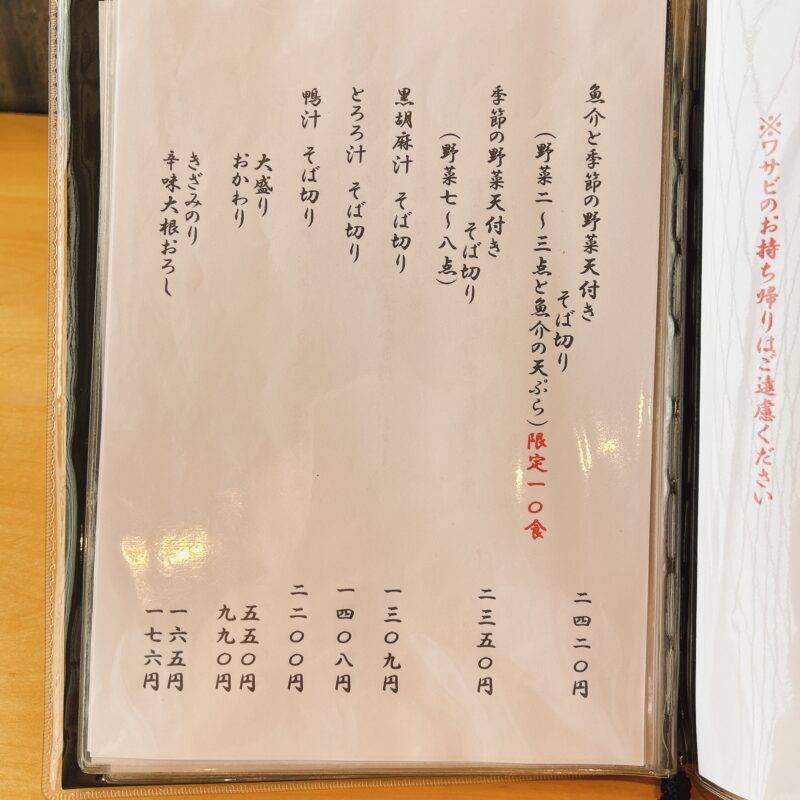 ※ワサビのお持ち帰りはご遠慮ください
魚介と季節の野菜天付き
そば切り
二四二〇円
（野菜二〜三点と魚介の天ぷら）限定一〇食
季節の野菜天付き
そば切り
二三五〇円
（野菜七〜八点）
黒胡麻汁 そば切り
一三〇九円
とろろ汁 そば切り
一四〇八円
鴨汁 そば切り
二二〇〇円
大盛り
五五〇円
おかわり
九九〇円
きざみのり
一六五円
辛味大根おろし
一七六円